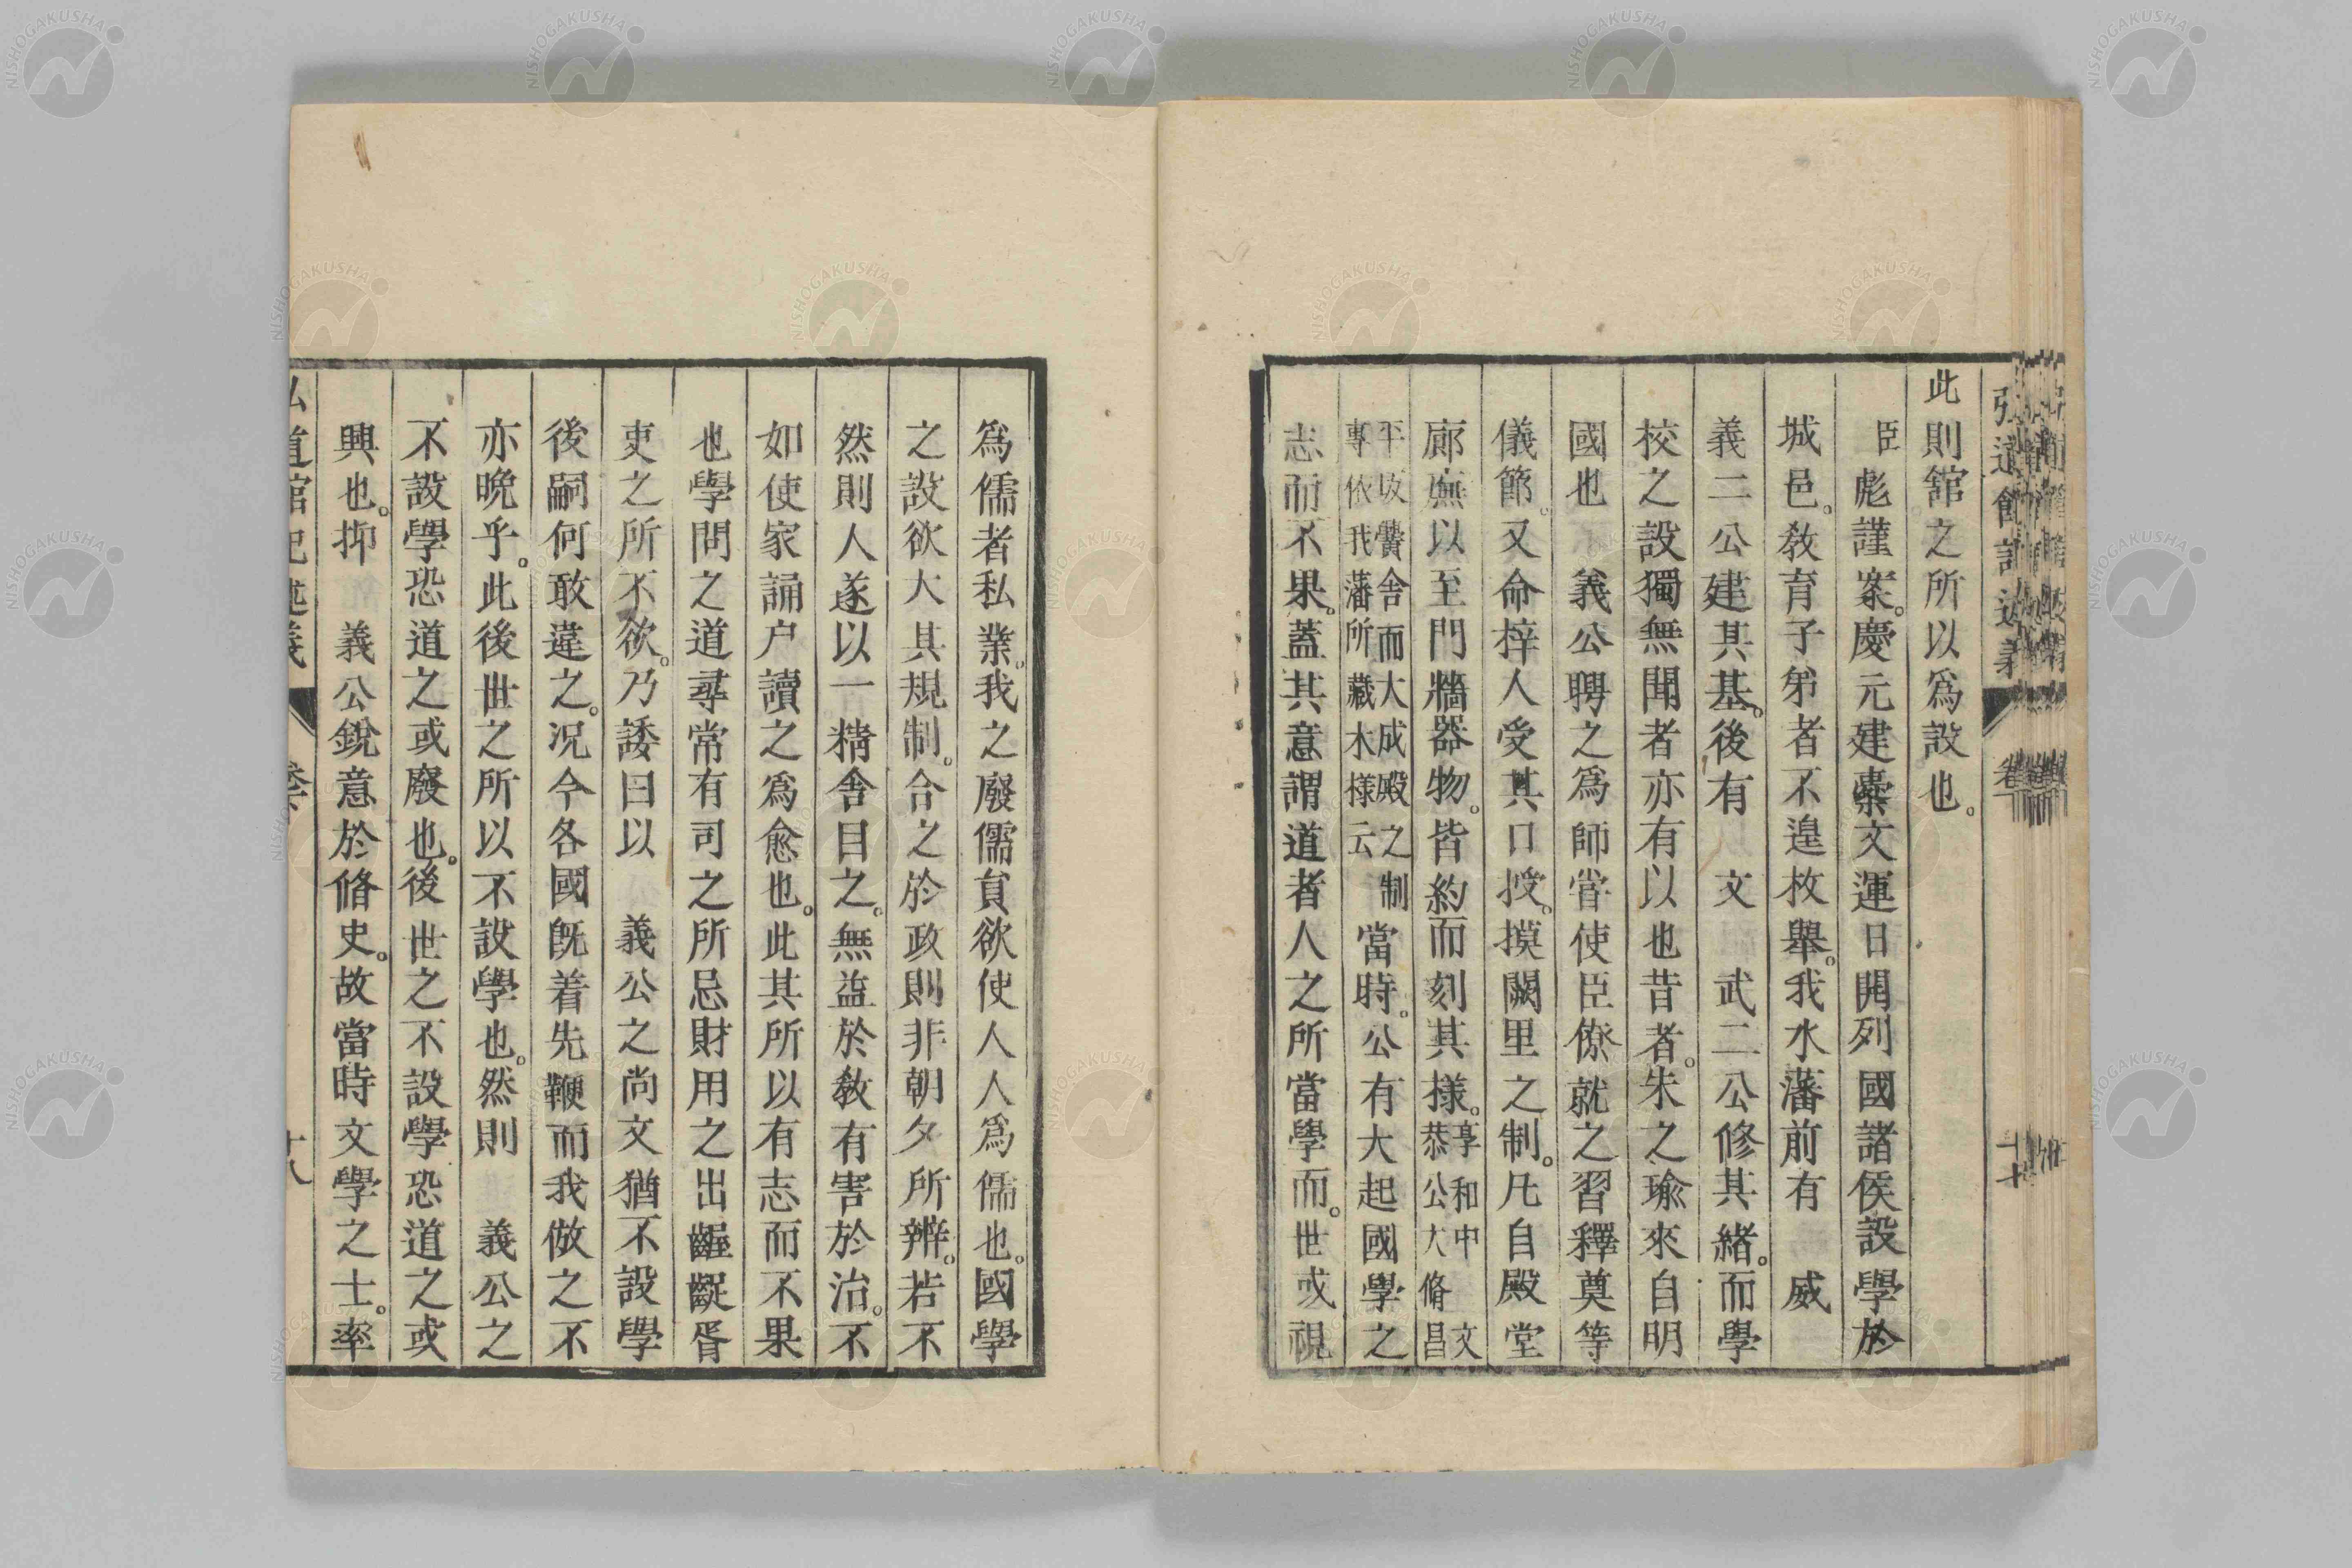 此則舘之所以爲設也。
臣彪謹案。慶元建櫜文運日開列國諸侯設學於
城邑。敎育子弟者不遑枚舉。我水藩前有　威
義二公建其基。後有　文　武二公修其緖。而學
校之設獨無聞者亦有以也昔者。朱之瑜來自明
國也　義公聘之爲師甞使臣僚就之習釋奠等
儀節。又命梓人受其口授。摸闕里之制。凡自殿堂
廊廡以至門牆器物。皆約而刻其樣。享和中文
恭公大脩昌
平坂黌舍而大成殿之制
專依我藩所藏木樣云
當時。公有大起國學之
志而不果。蓋其意謂道者人之所當學而。世或視
弘道館記述義
卷
十七
爲儒者私業。我之廢儒員欲使人人爲儒也。國學
之設欲大其規制。合之於政則非朝夕所辨。若不
然則人遂以一精舍目之。無益於敎有害於治。不
如使家誦户讀之爲愈也。此其所以有志而不果
也學問之道尋常有司之所忌財用之出齷齪胥
吏之所不欲。乃諉曰以　義公之尚文猶不設學
後嗣何敢違之。况今各國旣着先鞭而我倣之不
亦晩乎。此後世之所以不設學也。然則　義公之
不設學恐道之或廢也。後世之不設學恐道之或
興也。抑　義公銳意於脩史。故當時文學之士。率
弘道館記述義
十八
NISHOGAKUSHA